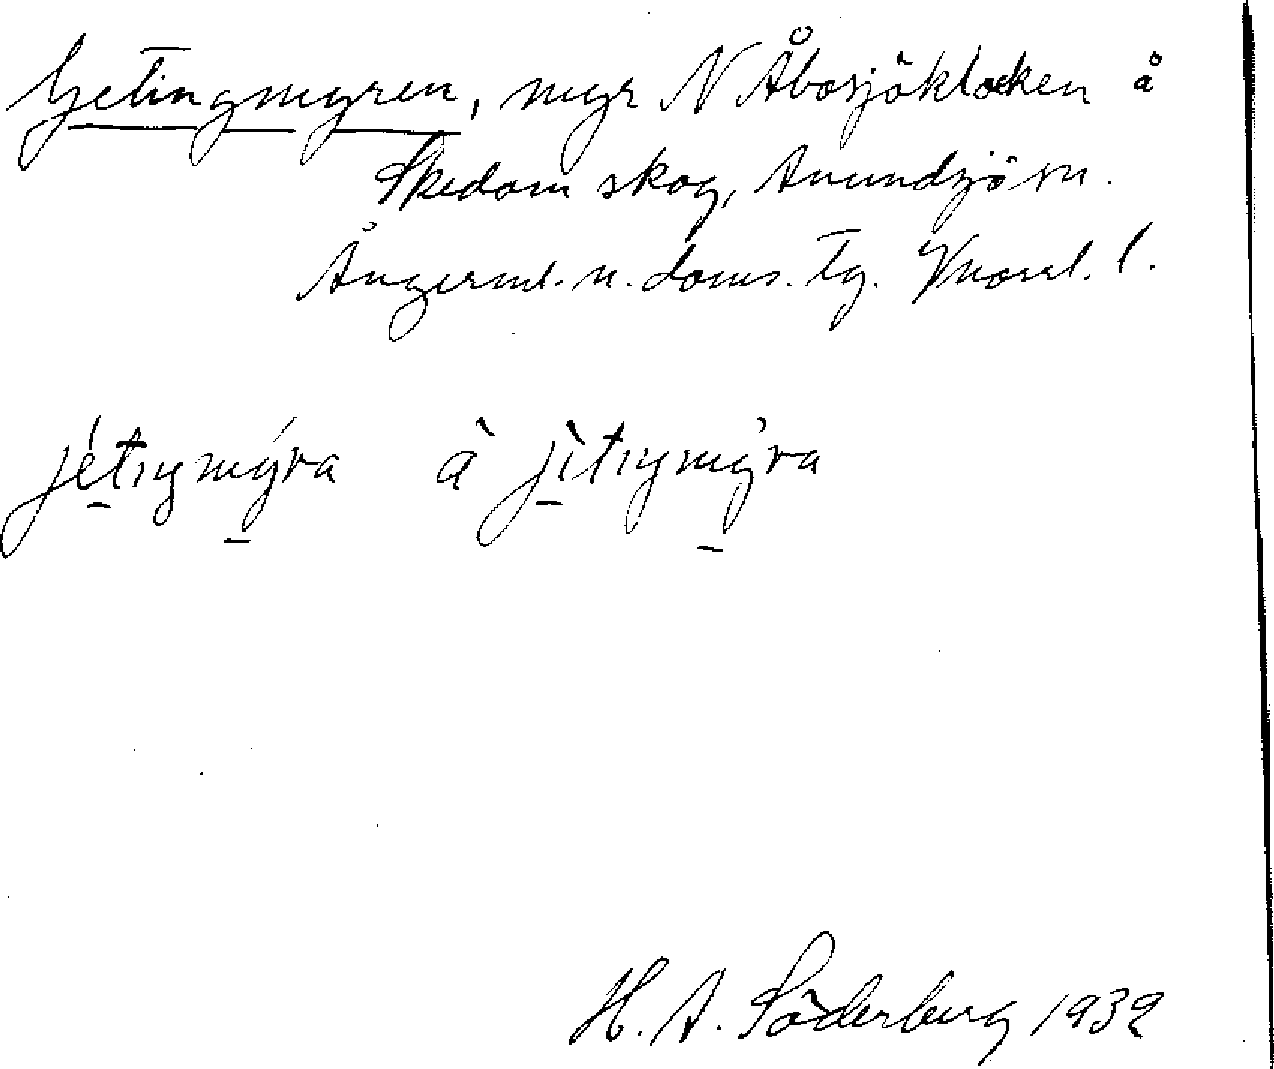 Getingmyren, myr N Åbosjöklocken å
Skedom skog, Anundsjö sn.
Ångerml. n. doms. tg. Vnorrl. l.
jétiŋmýra à jìtiŋmỳra
H. A. Söderberg 1932